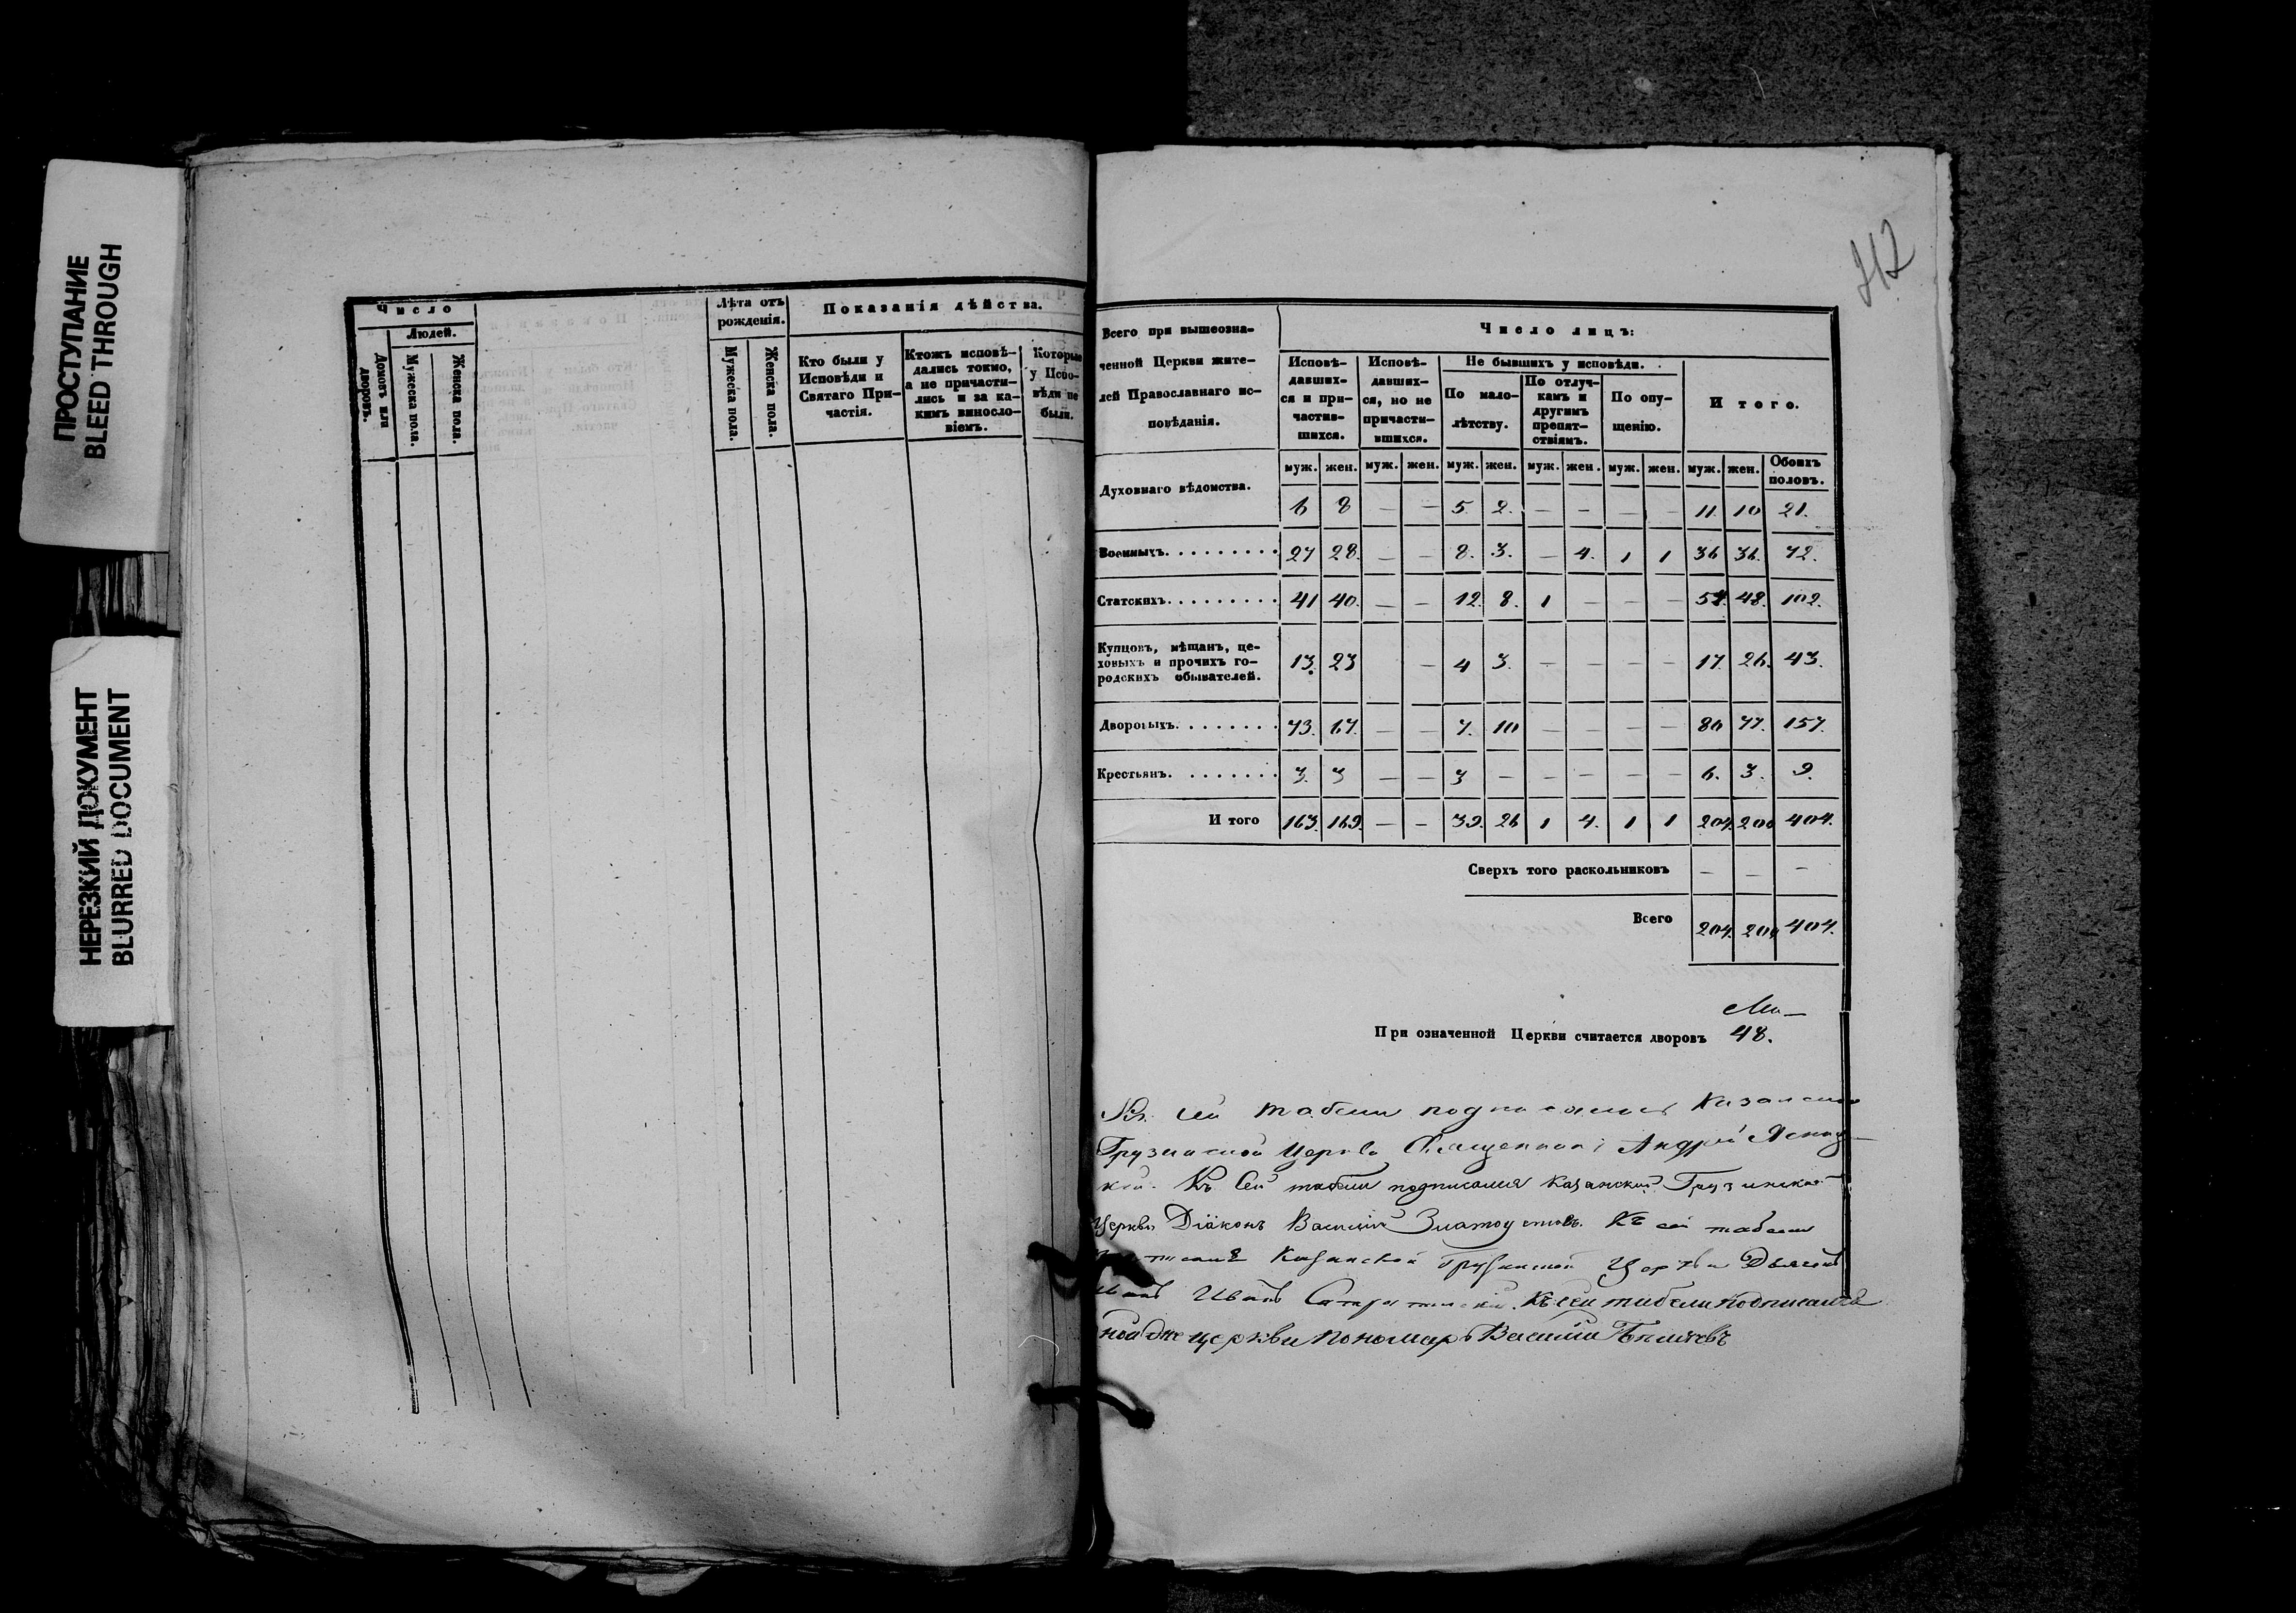 ПРОСТУПАНИЕ
BLEED THROUGH
НЕРЕЗКИЙ ДОКУМЕНТ
BLURRED DOCUMENT
Число
Людей.
Домовъ или дворовъ.
Мужеска пола.
Женска пола.
Лѣта отъ рожденія.
Мужеска пола.
Женска пола.
Показанія дѣйства.
Кто были у
Исповѣди и
Святаго При-
частія.
Ктожъ исповѣ-
дались токмо,
а не причасти-
лись и за ка-
кимъ винослo-
віемъ.
Которые
у Испо-
вѣди не
были.
Всего при вышеозна-
ченной Церкви жите-
лей Православнаго ис-
повѣданія.
Число лицъ:
Исповѣ-
давших-
ся и при-
частив-
шихся.
Исповѣ-
давших-
ся, но не
причасти-
вшихся.
Не бывшихъ у исповѣди.
По мало-
лѣтству.
По отлуч-
камъ и
другимъ
препят-
ствіямъ.
По опу-
щенію.
Итого.
муж. жен. муж. жен. муж. жен. муж. жен. муж. жен. муж. жен. Обоихъ половъ.
Духовнаго вѣдомства. 6 8 — — 5. 2. — — — — 11 10 21.
Военныхъ. 27 28. — — 8. 3. — 4. 1 1 36 36. 72.
Статскихъ. 41 40. — — 12. 8. 1 — — — 54. 48. 102.
Купцовъ, мѣщанъ, це-
ховыхъ и прочихъ го-
родскихъ обывателей. 13. 23 — 4 3. — — — — 17. 26. 43.
Дворовыхъ. 73. 67. — — 7. 10 — — — — 80 77. 157.
Крестьянъ. 3. 3 — — 3 — — — — — 6. 3. 9.
Итого 163. 169. — — 39. 26 1 4. 1 1 204. 200 404.
Сверхъ того раскольниковъ — — —
Всего 204. 200 404.
При означенной Церкви считается дворовъ 48.
Къ сей табели подписался Казанской
Грузинской Церкви Священникъ Андрей
Къ Сей табели подписался Казанской Грузинской
Церкви Діаконъ Василій Златоустовъ. Къ сей табели
Казанской Грузинской Церкви
Иванъ Къ сей табели подписался
Церкви пономарь Василій